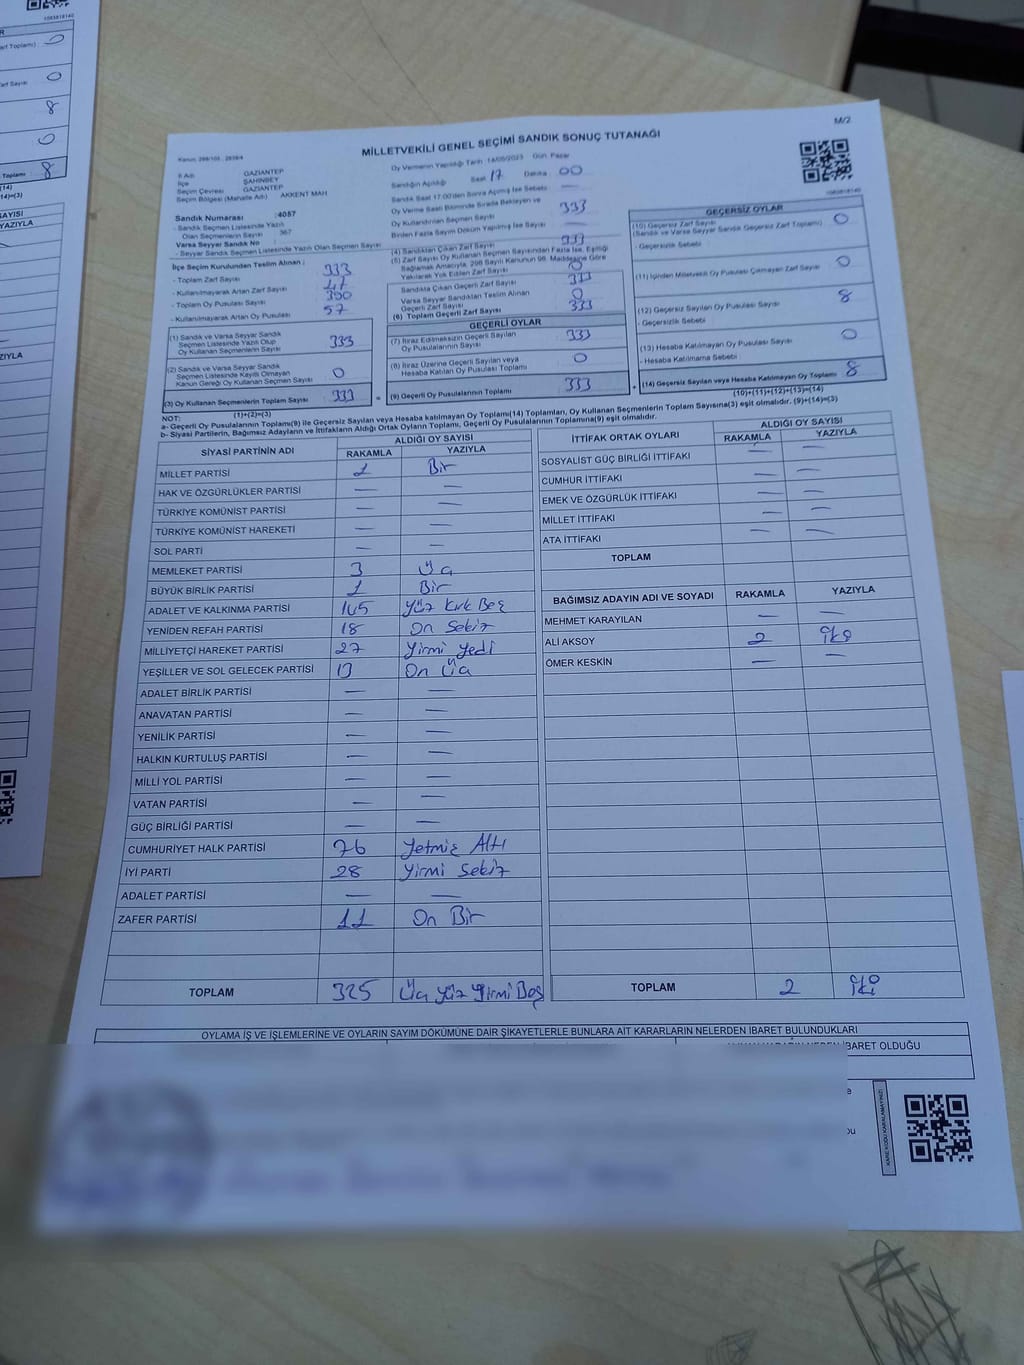 M/2
MİLLETVEKİLİ GENEL SEÇİMİ SANDIK SONUÇ TUTANAĞI
İl Adı GAZİANTEP
İlçe ŞAHİNBEY
Seçim Çevresi GAZİANTEP
Seçim Bölgesi (Mahalle Adı) AKKENT MAH
Sandık Numarası :4057
- Sandık Seçmen Listesinde Yazılı
Olan Seçmenlerin Sayısı : 367
Varsa Seyyar Sandık No
- Seyyar Sandık Seçmen Listesinde Yazılı Olan Seçmen Sayısı
İlçe Seçim Kurulundan Teslim Alınan :
- Toplam Zarf Sayısı
- Kullanılmayarak Artan Zarf Sayısı 47
- Toplam Oy Pusulası Sayısı
- Kullanılmayarak Artan Oy Pusulası 57
(1) Sandık ve Varsa Seyyar Sandık
Seçmen Listesinde Yazılı Olup
Oy Kullanan Seçmenlerin Sayısı 333
(2) Sandık ve Varsa Seyyar Sandık
Seçmen Listesinde Kayıtlı Olmayan
Kanun Gereği Oy Kullanan Seçmen Sayısı 0
(3) Oy Kullanan Seçmenlerin Toplam Sayısı 333
(1)+(2)=(3)
Oy Vermenin Yapıldığı Tarih :14/05/2023 Gün: Pazar
Sandığın Açıldığı Saat 17 Dakika 00
Sandık Saat 17.00'den Sonra Açılmış İse Sebebi —
Oy Verme Saati Bitiminde Sırada Bekleyen ve
Oy Kullandırılan Seçmen Sayısı 333
Birden Fazla Sayım Döküm Yapılmış İse Sayısı —
(4) Sandıktan Çıkan Zarf Sayısı 333
(5) Zarf Sayısı Oy Kullanan Seçmen Sayısından Fazla İse, Eşitliği
Sağlamak Amacıyla, 298 Sayılı Kanunun 98. Maddesine Göre
Yakılarak Yok Edilen Zarf Sayısı 0
Sandıkta Çıkan Geçerli Zarf Sayısı 333
Varsa Seyyar Sandıktan Teslim Alınan
Geçerli Zarf Sayısı 0
(6) Toplam Geçerli Zarf Sayısı 333
GEÇERLİ OYLAR
(7) İtiraz Edilmeksizin Geçerli Sayılan
Oy Pusulalarının Sayısı 333
(8) İtiraz Üzerine Geçerli Sayılan veya
Hesaba Katılan Oy Pusulası Toplamı 0
(9) Geçerli Oy Pusulalarının Toplamı 333
GEÇERSİZ OYLAR
(10) Geçersiz Zarf Sayısı 0
(Sandık ve Varsa Seyyar Sandık Geçersiz Zarf Toplamı)
- Geçersizlik Sebebi :
(11) İçinden Milletvekili Oy Pusulası Çıkmayan Zarf Sayısı 0
(12) Geçersiz Sayılan Oy Pusulası Sayısı 8
- Geçersizlik Sebebi :
(13) Hesaba Katılmayan Oy Pusulası Sayısı 0
- Hesaba Katılmama Sebebi :
(14) Geçersiz Sayılan veya Hesaba Katılmayan Oy Toplamı 8
(10)+(11)+(12)+(13)=(14)
NOT:
a- Geçerli Oy Pusulalarının Toplamı(9) ile Geçersiz Sayılan veya Hesaba katılmayan Oy Toplamı(14) Toplamları, Oy Kullanan Seçmenlerin Toplam Sayısına(3) eşit olmalıdır. (9)+(14)=(3)
b- Siyasi Partilerin, Bağımsız Adayların ve İttifakların Aldığı Ortak Oyların Toplamı, Geçerli Oy Pusulalarının Toplamına(9) eşit olmalıdır.
SİYASİ PARTİNİN ADI ALDIĞI OY SAYISI
RAKAMLA YAZIYLA
MİLLET PARTİSİ 1 Bir
HAK VE ÖZGÜRLÜKLER PARTİSİ — —
TÜRKİYE KOMÜNİST PARTİSİ — —
TÜRKİYE KOMÜNİST HAREKETİ — —
SOL PARTİ — —
MEMLEKET PARTİSİ 3 Üç
BÜYÜK BİRLİK PARTİSİ 1 Bir
ADALET VE KALKINMA PARTİSİ 145 Yüz Kırk Beş
YENİDEN REFAH PARTİSİ 18 On Sekiz
MİLLİYETÇİ HAREKET PARTİSİ 27 Yirmi Yedi
YEŞİLLER VE SOL GELECEK PARTİSİ 13 On Üç
ADALET BİRLİK PARTİSİ — —
ANAVATAN PARTİSİ — —
YENİLİK PARTİSİ — —
HALKIN KURTULUŞ PARTİSİ — —
MİLLİ YOL PARTİSİ — —
VATAN PARTİSİ — —
GÜÇ BİRLİĞİ PARTİSİ — —
CUMHURİYET HALK PARTİSİ 76 Yetmiş Altı
İYİ PARTİ 28 Yirmi Sekiz
ADALET PARTİSİ — —
ZAFER PARTİSİ 11 On Bir
TOPLAM 325 Üç Yüz Yirmi Beş
İTTİFAK ORTAK OYLARI ALDIĞI OY SAYISI
RAKAMLA YAZIYLA
SOSYALİST GÜÇ BİRLİĞİ İTTİFAKI — —
CUMHUR İTTİFAKI — —
EMEK VE ÖZGÜRLÜK İTTİFAKI — —
MİLLET İTTİFAKI — —
ATA İTTİFAKI — —
TOPLAM
BAĞIMSIZ ADAYIN ADI VE SOYADI RAKAMLA YAZIYLA
MEHMET KARAYILAN — —
ALİ AKSOY 2 İki
ÖMER KESKİN — —
TOPLAM 2 İki
OYLAMA İŞ VE İŞLEMLERİNE VE OYLARIN SAYIM DÖKÜMÜNE DAİR ŞİKAYETLERLE BUNLARA AİT KARARLARIN NELERDEN İBARET BULUNDUKLARI
İBARET OLDUĞU